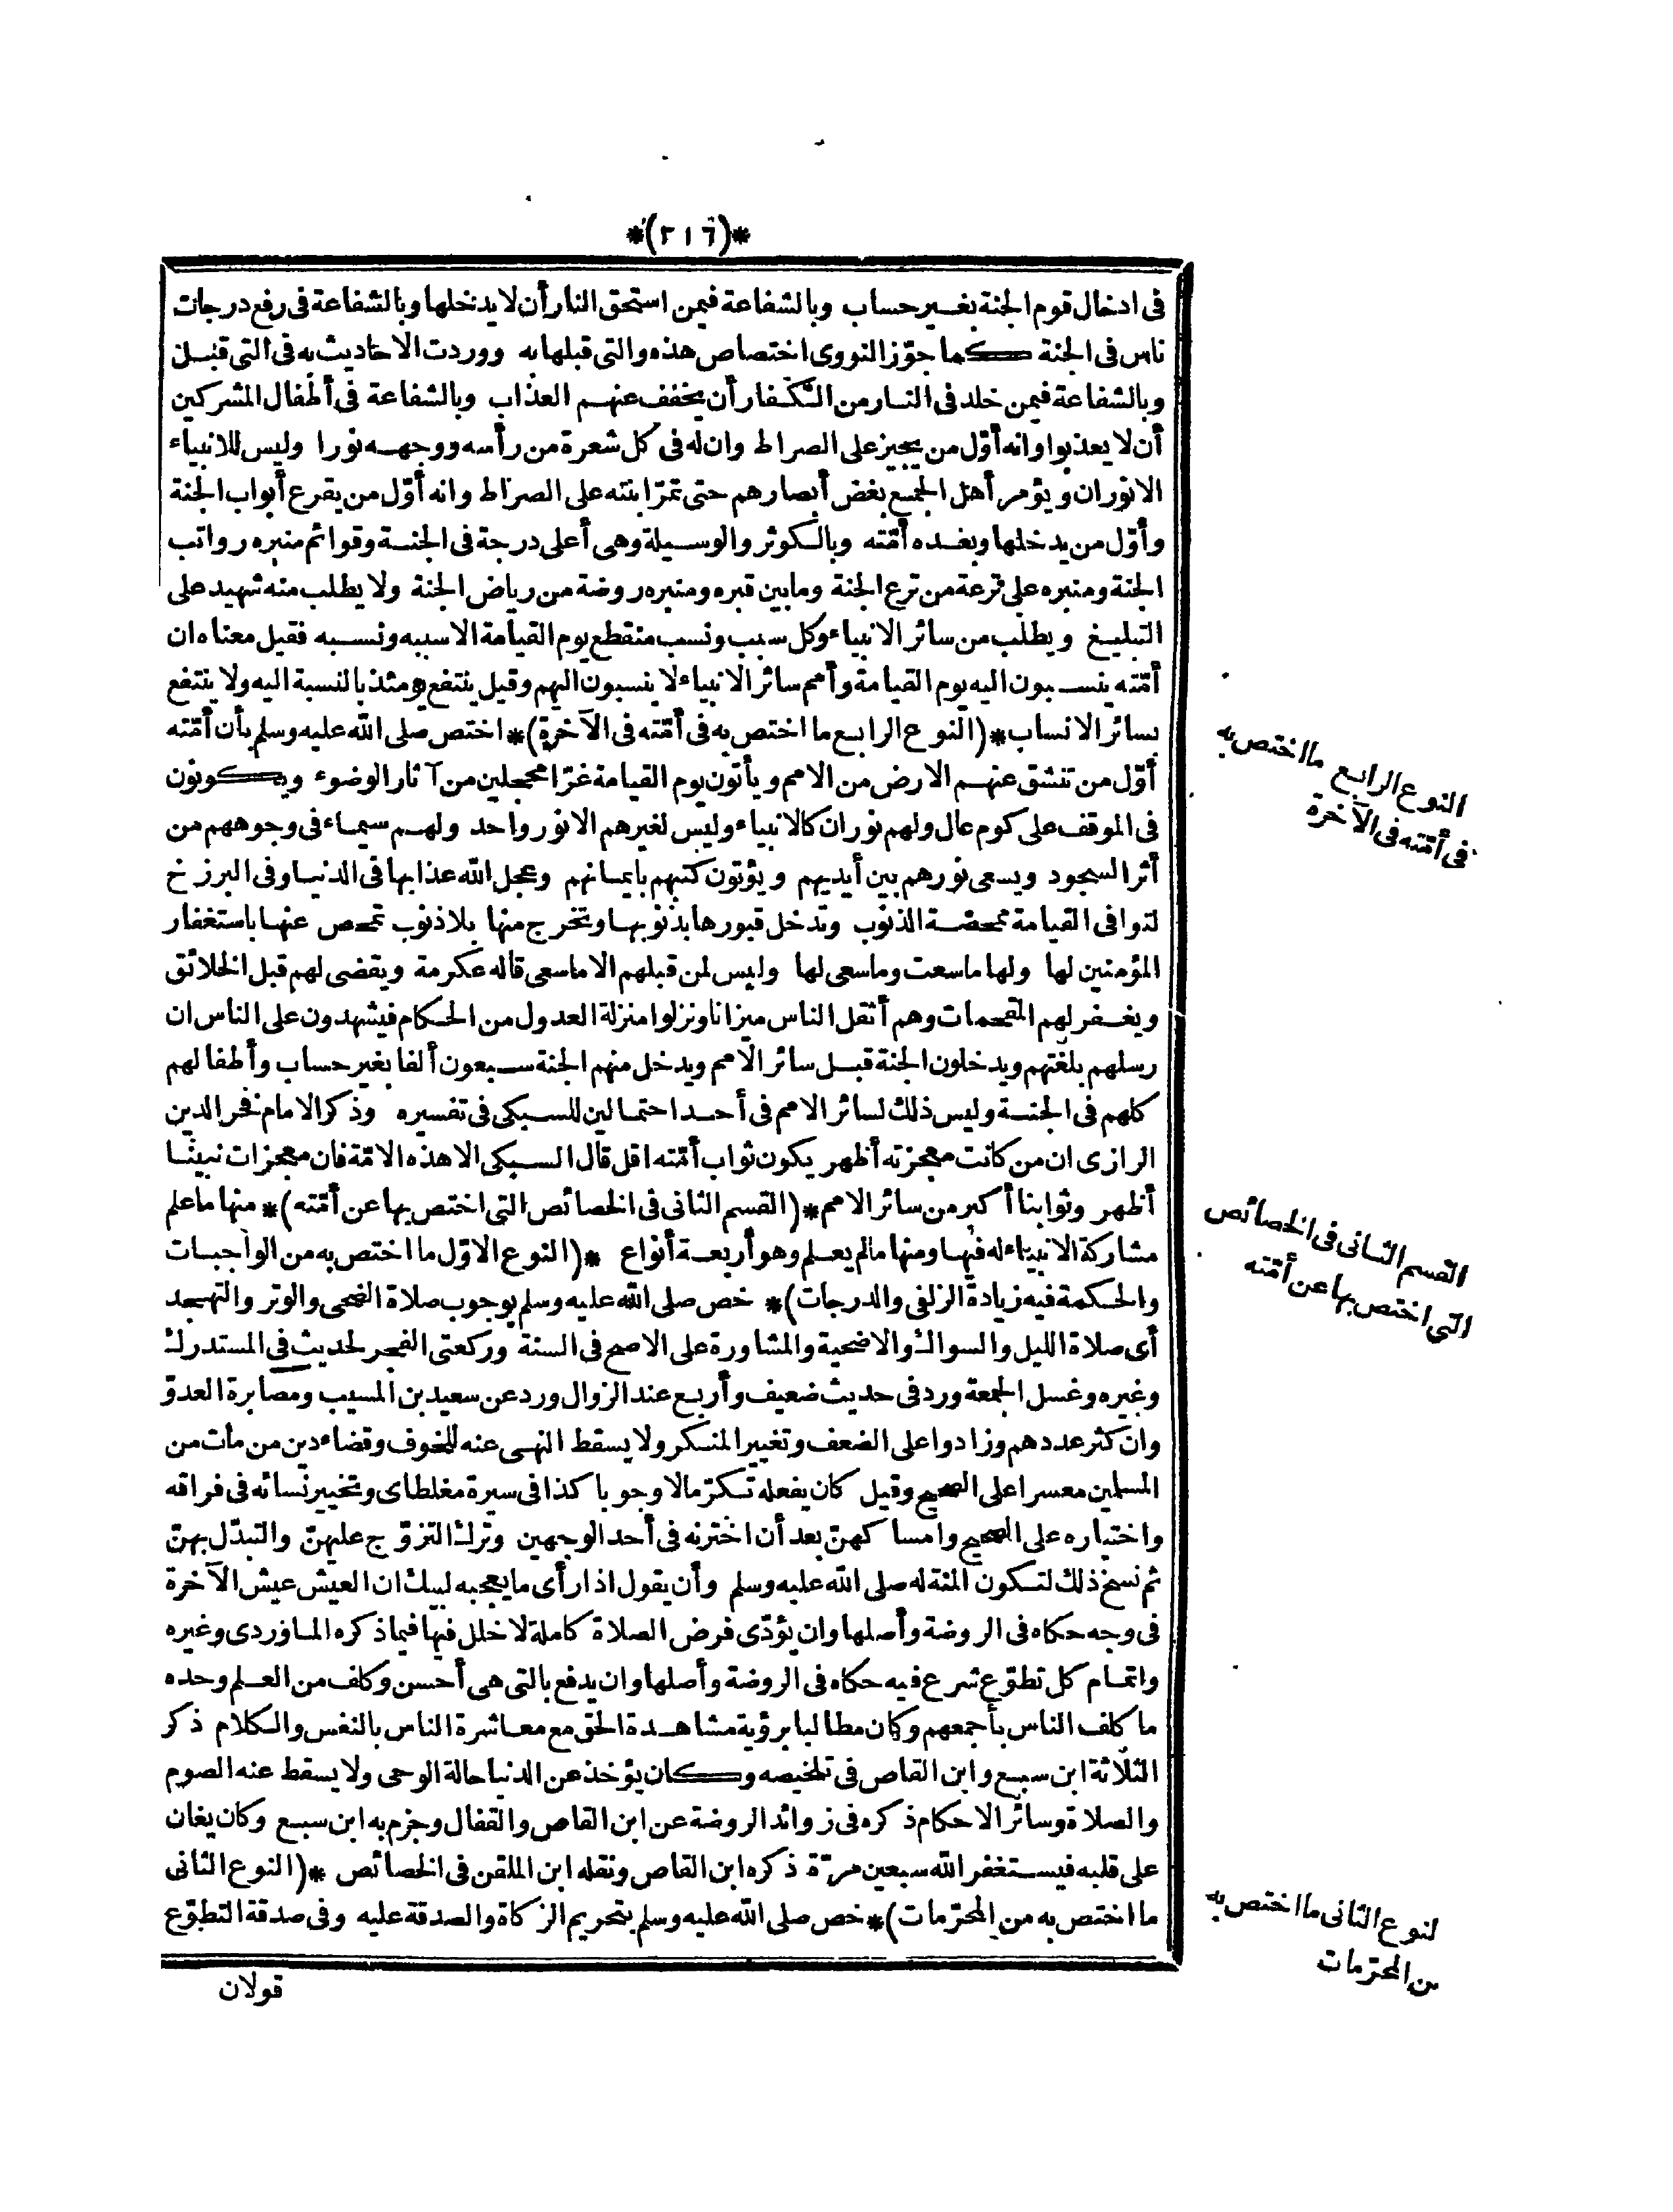 *(٢١٦)*
فى ادخال قوم الجنة بغير حساب وبالشفاعة فيمن استحق النار أن لا يدخلها وبالشفاعة فى رفع درجات
ناس فى الجنة كما جوّز النووى اختصاص هذه والتى قبلها به ووردت الاحاديث به فى التى قبل
وبالشفاعة فيمن خلد فى النار من الكفار أن يخفف عنهم العذاب وبالشفاعة فى أطفال المشركين
أن لا يعذبوا وانه أوّل من يجيز على الصراط وان له فى كل شعرة من رأسه ووجهه نورا وليس للانبياء
الانوران ويؤمر أهل الجمع بغض أبصارهم حتى تمرّ ابنته على الصراط وانه أوّل من يقرع أبواب الجنة
وأوّل من يدخلها وبعده أمّته وبالكوثر والوسيلة وهى أعلى درجة فى الجنة وقوائم منبره رواتب
الجنة ومنبره على ترعة من ترع الجنة وما بين قبره ومنبره روضة من رياض الجنة ولا يطلب منه شهيد على
التبليغ ويطلب من سائر الانبياء وكل سبب ونسب منقطع يوم القيامة الا سببه ونسبه فقيل معناه ان
أمّته ينسبون اليه يوم القيامة وأمم سائر الانبياء لا ينسبون اليهم وقيل ينتفع يومئذ بالنسبة اليه ولا ينتفع
بسائر الانساب *(النوع الرابع ما اختص به فى أمّته فى الآخرة)* اختص صلى الله عليه وسلم بأن أمّته
أوّل من تنشق عنهم الارض من الامم ويأتون يوم القيامة غرّا محجلين من آثار الوضوء ويكونون
فى الموقف على كوم عال ولهم نوران كالانبياء وليس لغيرهم الا نور واحد ولهم سيماء فى وجوههم من
أثر السجود ويسعى نورهم بين أيديهم ويؤتون كتبهم بايمانهم وعجل الله عذابها فى الدنيا وفى البرزخ
لتوافى القيامة ممحصة الذنوب وتدخل قبورها بذنوبها وتخرج منها بلا ذنوب تمحص عنها باستغفار
المؤمنين لها ولها ما سعت وما سعى لها وليس لمن قبلهم الا ما سعى قاله عكرمة ويقضى لهم قبل الخلائق
ويغفر لهم المقحمات وهم أثقل الناس ميزانا ونزلوا منزلة العدول من الحكام فيشهدون على الناس ان
رسلهم بلغتهم ويدخلون الجنة قبل سائر الامم ويدخل منهم الجنة سبعون ألفا بغير حساب وأطفالهم
كلهم فى الجنة وليس ذلك لسائر الامم فى أحد احتمالين للسبكى فى تفسيره وذكر الامام فخر الدين
الرازى ان من كانت معجزته أظهر يكون ثواب أمّته اقل قال السبكى الا هذه الامّة فان معجزات نبينا
أظهر وثوابنا أكبر من سائر الامم *(القسم الثانى فى الخصائص التى اختص بها عن أمّته)* منها ما علم
مشاركة الانبياء له فيها ومنها ما لم يعلم وهو أربعة أنواع *(النوع الاوّل ما اختص به من الواجبات
والحكمة فيه زيادة الزلفى والدرجات)* خص صلى الله عليه وسلم بوجوب صلاة الضحى والوتر والتهجد
أى صلاة الليل والسواك والاضحية والمشاورة على الاصح فى السنة وركعتى الفجر لحديث فى المستدرك
وغيره وغسل الجمعة ورد فى حديث ضعيف وأربع عند الزوال ورد عن سعيد بن المسيب ومصابرة العدوّ
وان كثر عددهم وزادوا على الضعف وتغيير المنكر ولا يسقط النهى عنه للخوف وقضاء دين من مات من
المسلمين معسرا على الصحيح وقيل كان يفعله تكرّما لا وجوبا كذا فى سيرة مغلطاى وتخيير نسائه فى فراقه
واختياره على الصحيح وامساكهنّ بعد أن اخترنه فى أحد الوجهين وترك التزوّج عليهنّ والتبدّل بهنّ
ثم نسخ ذلك لتكون المنة له صلى الله عليه وسلم وأن يقول اذا رأى ما يعجبه لبيك ان العيش عيش الآخرة
فى وجه حكاه فى الروضة وأصلها وان يؤدّى فرض الصلاة كاملة لا خلل فيها فيما ذكره الماوردى وغيره
واتمام كل تطوّع شرع فيه حكاه فى الروضة وأصلها وان يدفع بالتى هى أحسن وكلف من العلم وحده
ما كلف الناس بأجمعهم وكان مطالبا برؤية مشاهدة الحق مع معاشرة الناس بالنفس والكلام ذكر
الثلاثة ابن سبع وابن القاص فى تلخيصه وكان يؤخذ عن الدنيا حالة الوحى ولا يسقط عنه الصوم
والصلاة وسائر الاحكام ذكره فى زوائد الروضة عن ابن القاص والقفال وجزم به ابن سبع وكان يغان
على قلبه فيستغفر الله سبعين مرّة ذكره ابن القاص ونقله ابن الملقن فى الخصائص *(النوع الثانى
ما اختص به من المحرّمات)* خص صلى الله عليه وسلم بتحريم الزكاة والصدقة عليه وفى صدقة التطوّع
قولان
النوع الرابع ما اختص به
فى أمّته فى الآخرة
القسم الثانى فى الخصائص
التى اختص بها عن أمّته
لنوع الثانى ما اختص به
من المحرّمات